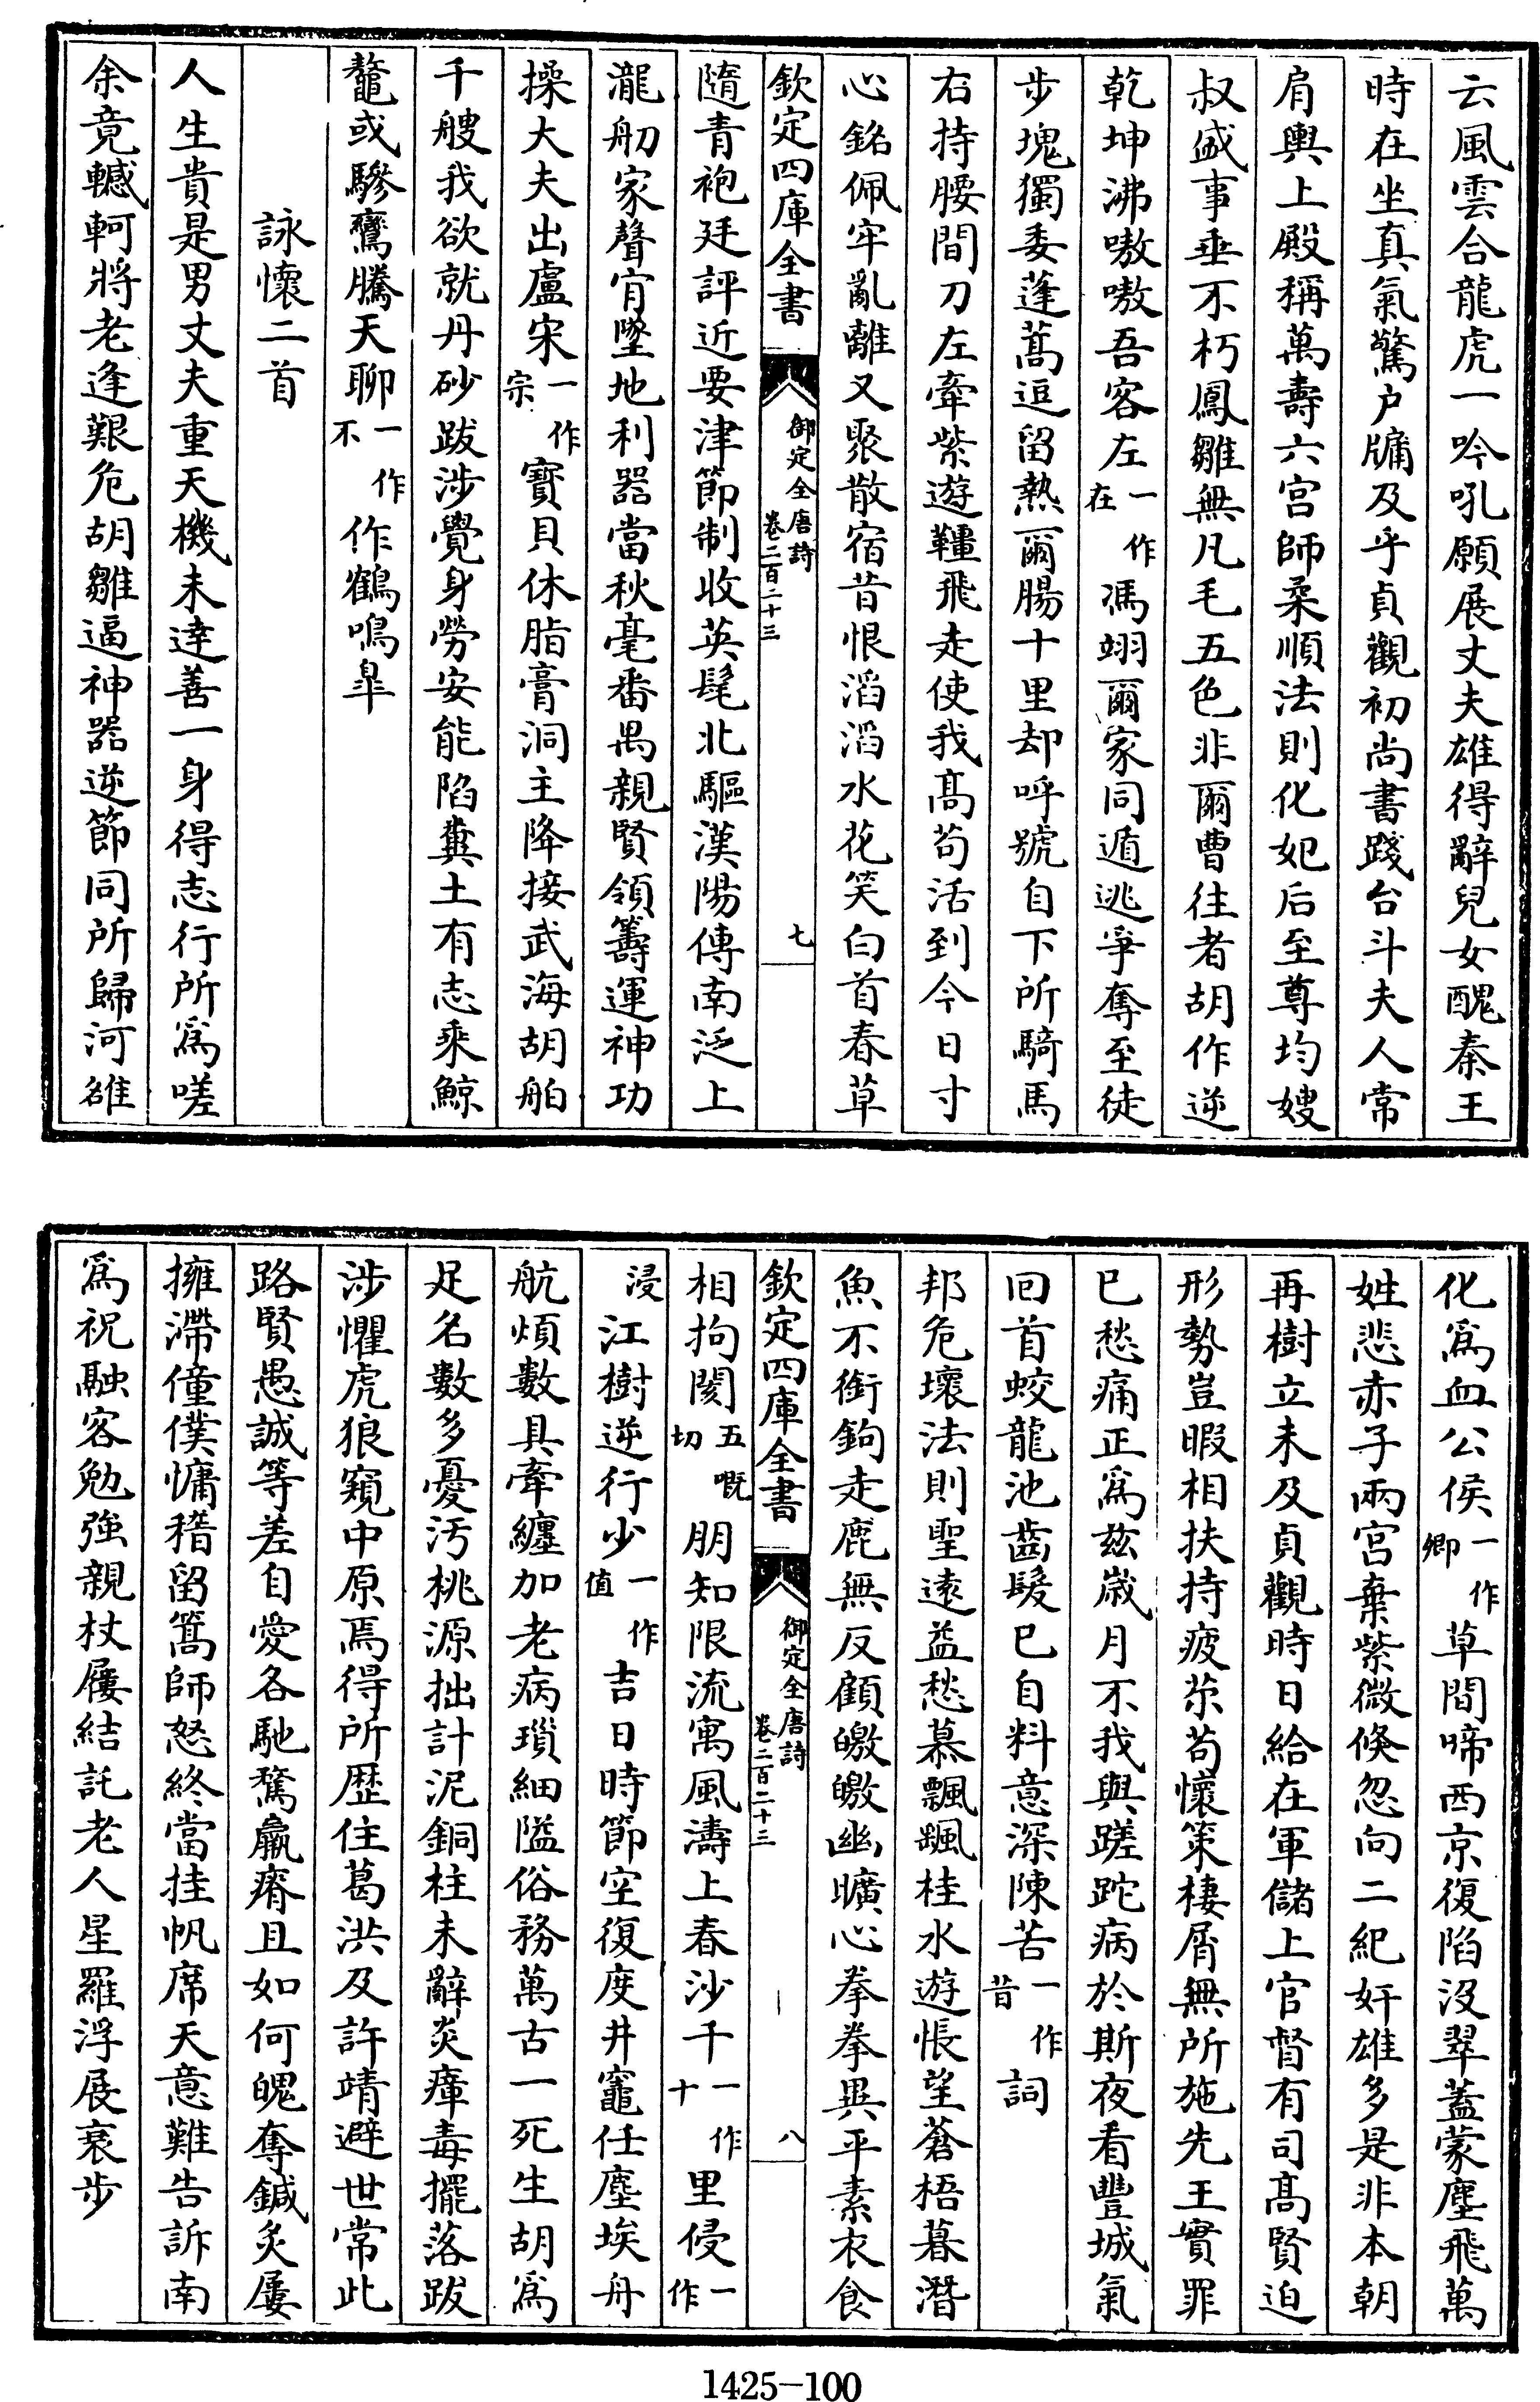 云風雲合龍虎一吟吼願展丈夫雄得辭兒女醜秦王
時在坐真氣驚户牖及乎貞觀初尚書踐台斗夫人常
肩輿上殿稱萬壽六宫師柔順法則化妃后至尊均嫂
叔盛事垂不朽鳳雛無凡毛五色非爾曹往者胡作逆
乾坤沸嗷嗷吾客左一作在馮翊爾家同遁逃爭奪至徒
步塊獨委蓬蒿逗留熱爾腸十里却呼號自下所騎馬
右持腰間刀左牽紫遊韁飛走使我髙苟活到今日寸
心銘佩牢亂離又聚散宿昔恨滔滔水花笑白首春草
欽定四庫全書 御定全唐詩 卷二百二十三 七
隨青袍廷評近要津節制收英髦北驅漢陽傳南泛上
瀧舠家聲肎墜地利器當秋毫番禺親賢領籌運神功
操大夫出盧宋一作宗寳貝休脂膏洞主降接武海胡舶
千艘我欲就丹砂跋涉覺身勞安能陷糞土有志乘鯨
鼇或驂鸞騰天聊一作不作鶴鳴臯
詠懷二首
人生貴是男丈夫重天機未逹善一身得志行所為嗟
余竟轗軻將老逢艱危胡雛逼神器逆節同所歸河雒
化為血公侯一作卿草間啼西京復陷沒翠蓋蒙塵飛萬
姓悲赤子兩宫棄紫微倐忽向二紀奸雄多是非本朝
再樹立未及貞觀時日給在軍儲上官督有司髙賢迫
形勢豈暇相扶持疲苶苟懷策棲屑無所施先王實罪
已愁痛正為兹嵗月不我與蹉跎病於斯夜看豐城氣
回首蛟龍池齒髮已自料意深陳苦一作昔詞
邦危壞法則聖遠益愁慕飄颻桂水遊悵望蒼梧暮潛
魚不銜鉤走鹿無反顧皦皦幽曠心拳拳異平素衣食
欽定四庫全書 御定全唐詩 卷二百二十三 八
相拘閡五嘅切朋知限流寓風濤上春沙千一作十里侵一作
浸江樹逆行少一作值吉日時節空復度井竈任塵埃舟
航煩數具牽纏加老病瑣細隘俗務萬古一死生胡為
足名數多憂汚桃源拙計泥銅柱未辭炎瘴毒擺落跋
涉懼虎狼窺中原焉得所歴住葛洪及許靖避世常此
路賢愚誠等差自愛各馳騖羸瘠且如何魄奪鍼灸屢
擁滯僮僕慵稽留篙師怒終當挂帆席天意難告訴南
為祝融客勉強親杖屨結託老人星羅浮展衰步
1425-100